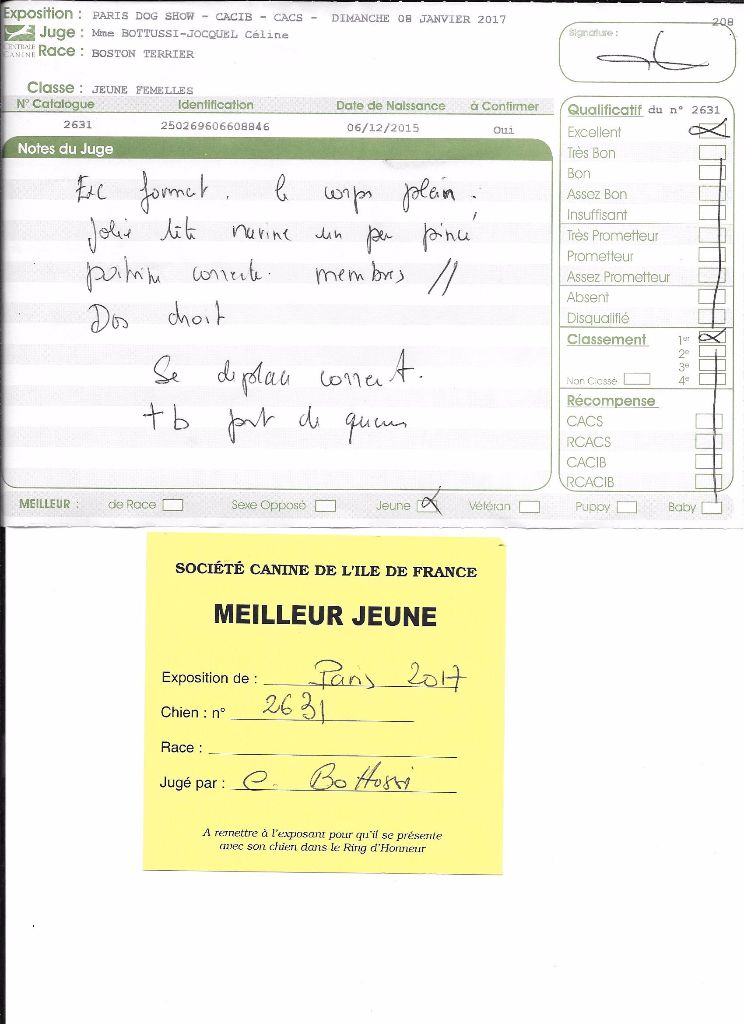 Exposition : PARIS DOG SHOW - CACIB - CACS - DIMANCHE 08 JANVIER 2017
208
Juge : Mme BOTTUSSI-JOCQUEL Céline
CENTRALE CANINE
Race : BOSTON TERRIER
Signature :
Classe : JEUNE FEMELLES
N° Catalogue Identification Date de Naissance à Confirmer
2631 250269606608846 06/12/2015 Oui
Notes du Juge
Exc format. le corps plein.
Jolie tête narine un peu pincé
poitrine correcte. membres //
Dos droit
Se deplace correct.
+ b port de queue
Qualificatif du n° 2631
Excellent
Très Bon
Bon
Assez Bon
Insuffisant
Très Prometteur
Prometteur
Assez Prometteur
Absent
Disqualifié
Classement 1er
2e
3e
Non Classé 4e
Récompense
CACS
RCACS
CACIB
RCACIB
MEILLEUR : de Race Sexe Opposé Jeune Vétéran Puppy Baby
SOCIÉTÉ CANINE DE L'ILE DE FRANCE
MEILLEUR JEUNE
Exposition de : Paris 2017
Chien : n° 2631
Race :
Jugé par : C. Bottussi
A remettre à l'exposant pour qu'il se présente
avec son chien dans le Ring d'Honneur